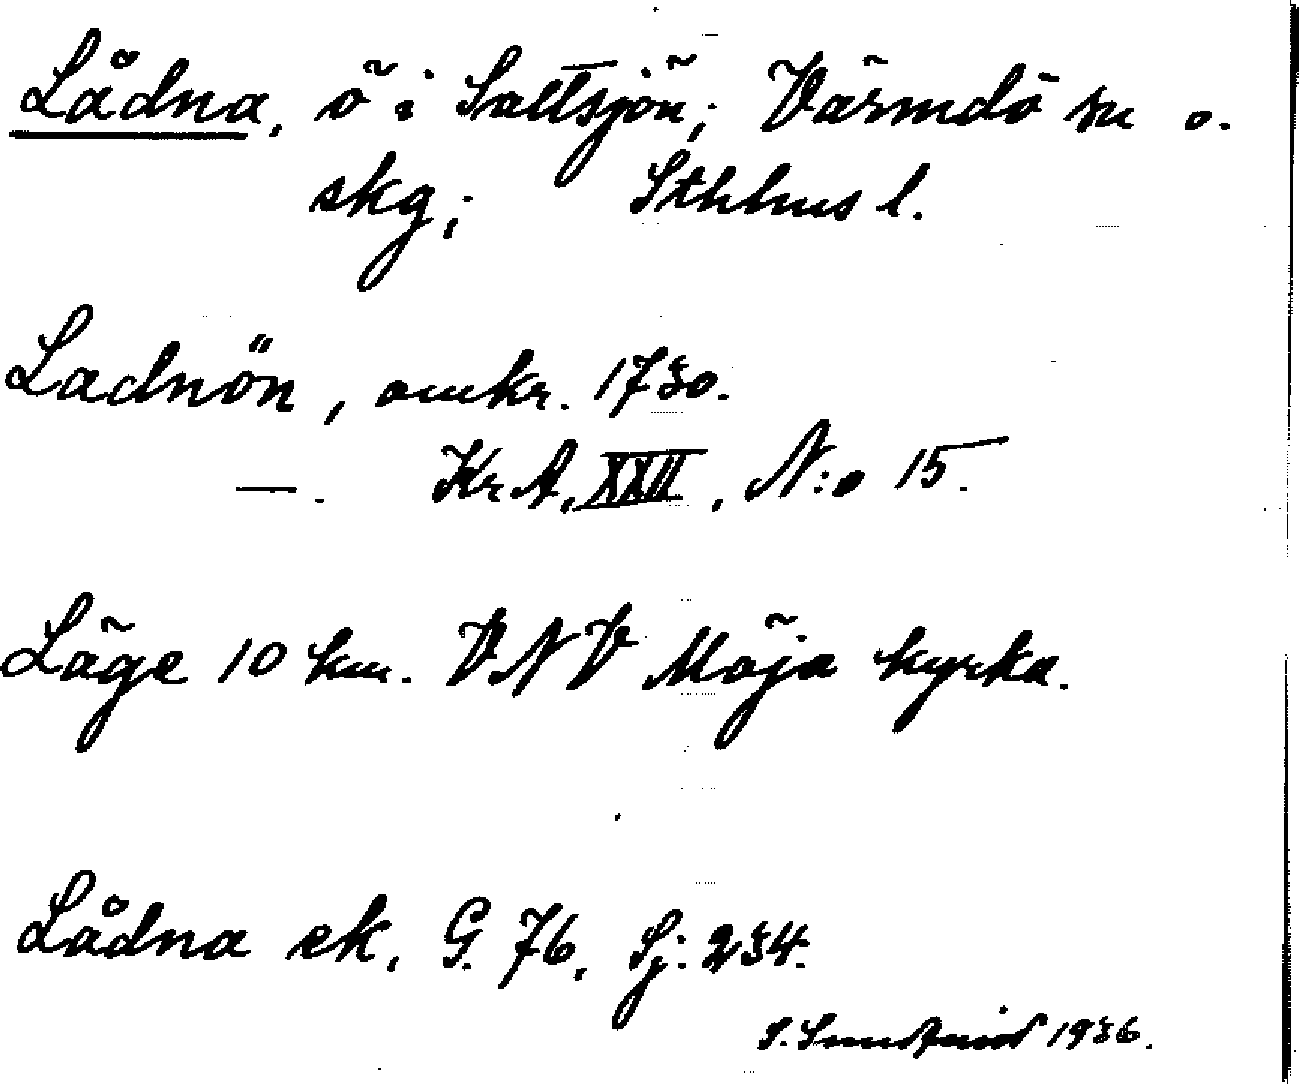 Lådna, ö i Saltsjön; Värmdö sn o.
skg; Sthlms l.
Ladnön, omkr. 1730.
—. Kr A, XXII, N:o 15.
Läge 10 km. VNV Möja kyrka.
Lådna ek, G. 76, Sj: 234.
S. 1936.